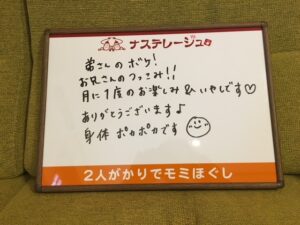 ナステレージュ
弟さんのボケ!
お兄さんのつっこみ!!
月に1度のお楽しみ&いやしです♡
ありがとうございます♪
身体 ポカポカです
2人がかりでモミほぐし